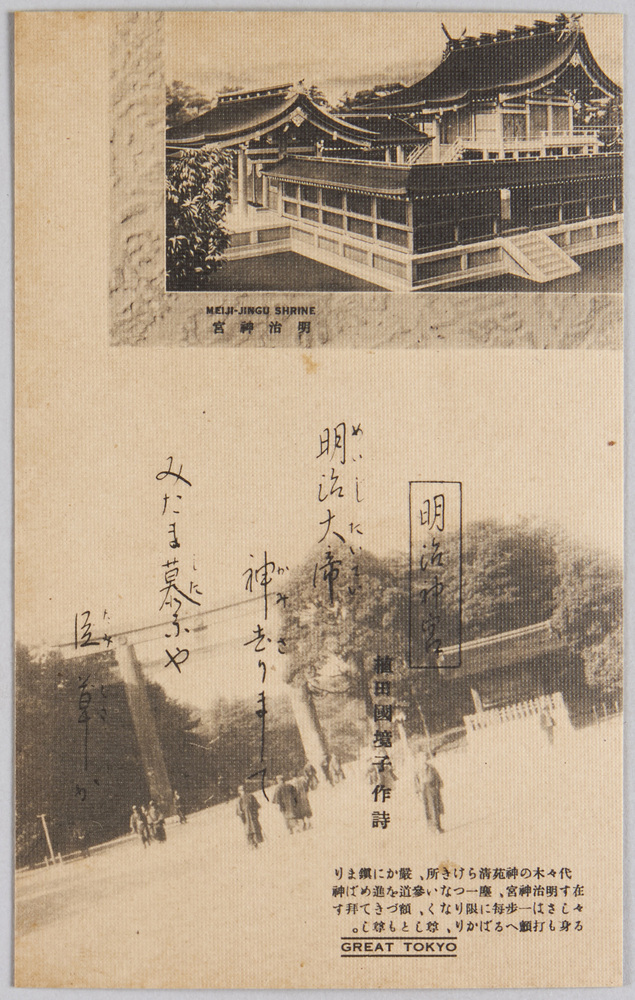 MEIJI-JINGU SHRINE
明治神宮
明治神宮
植田國境子作詩
めいじたいてい
明治大帝
かみさ
神去りまして
した
みたま慕ふや
たみくさ
民草が
代々木の神苑淸らけき所、嚴かに鎭まり
在す明治神宮、塵一つない參道を進めば神
々しさは一步每に限りなく、額づきて拜す
る身も打顫へるばかり、尊しとも尊し。
GREAT TOKYO